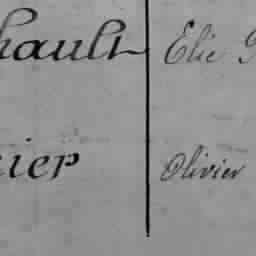 hault Elie
ier Olivier